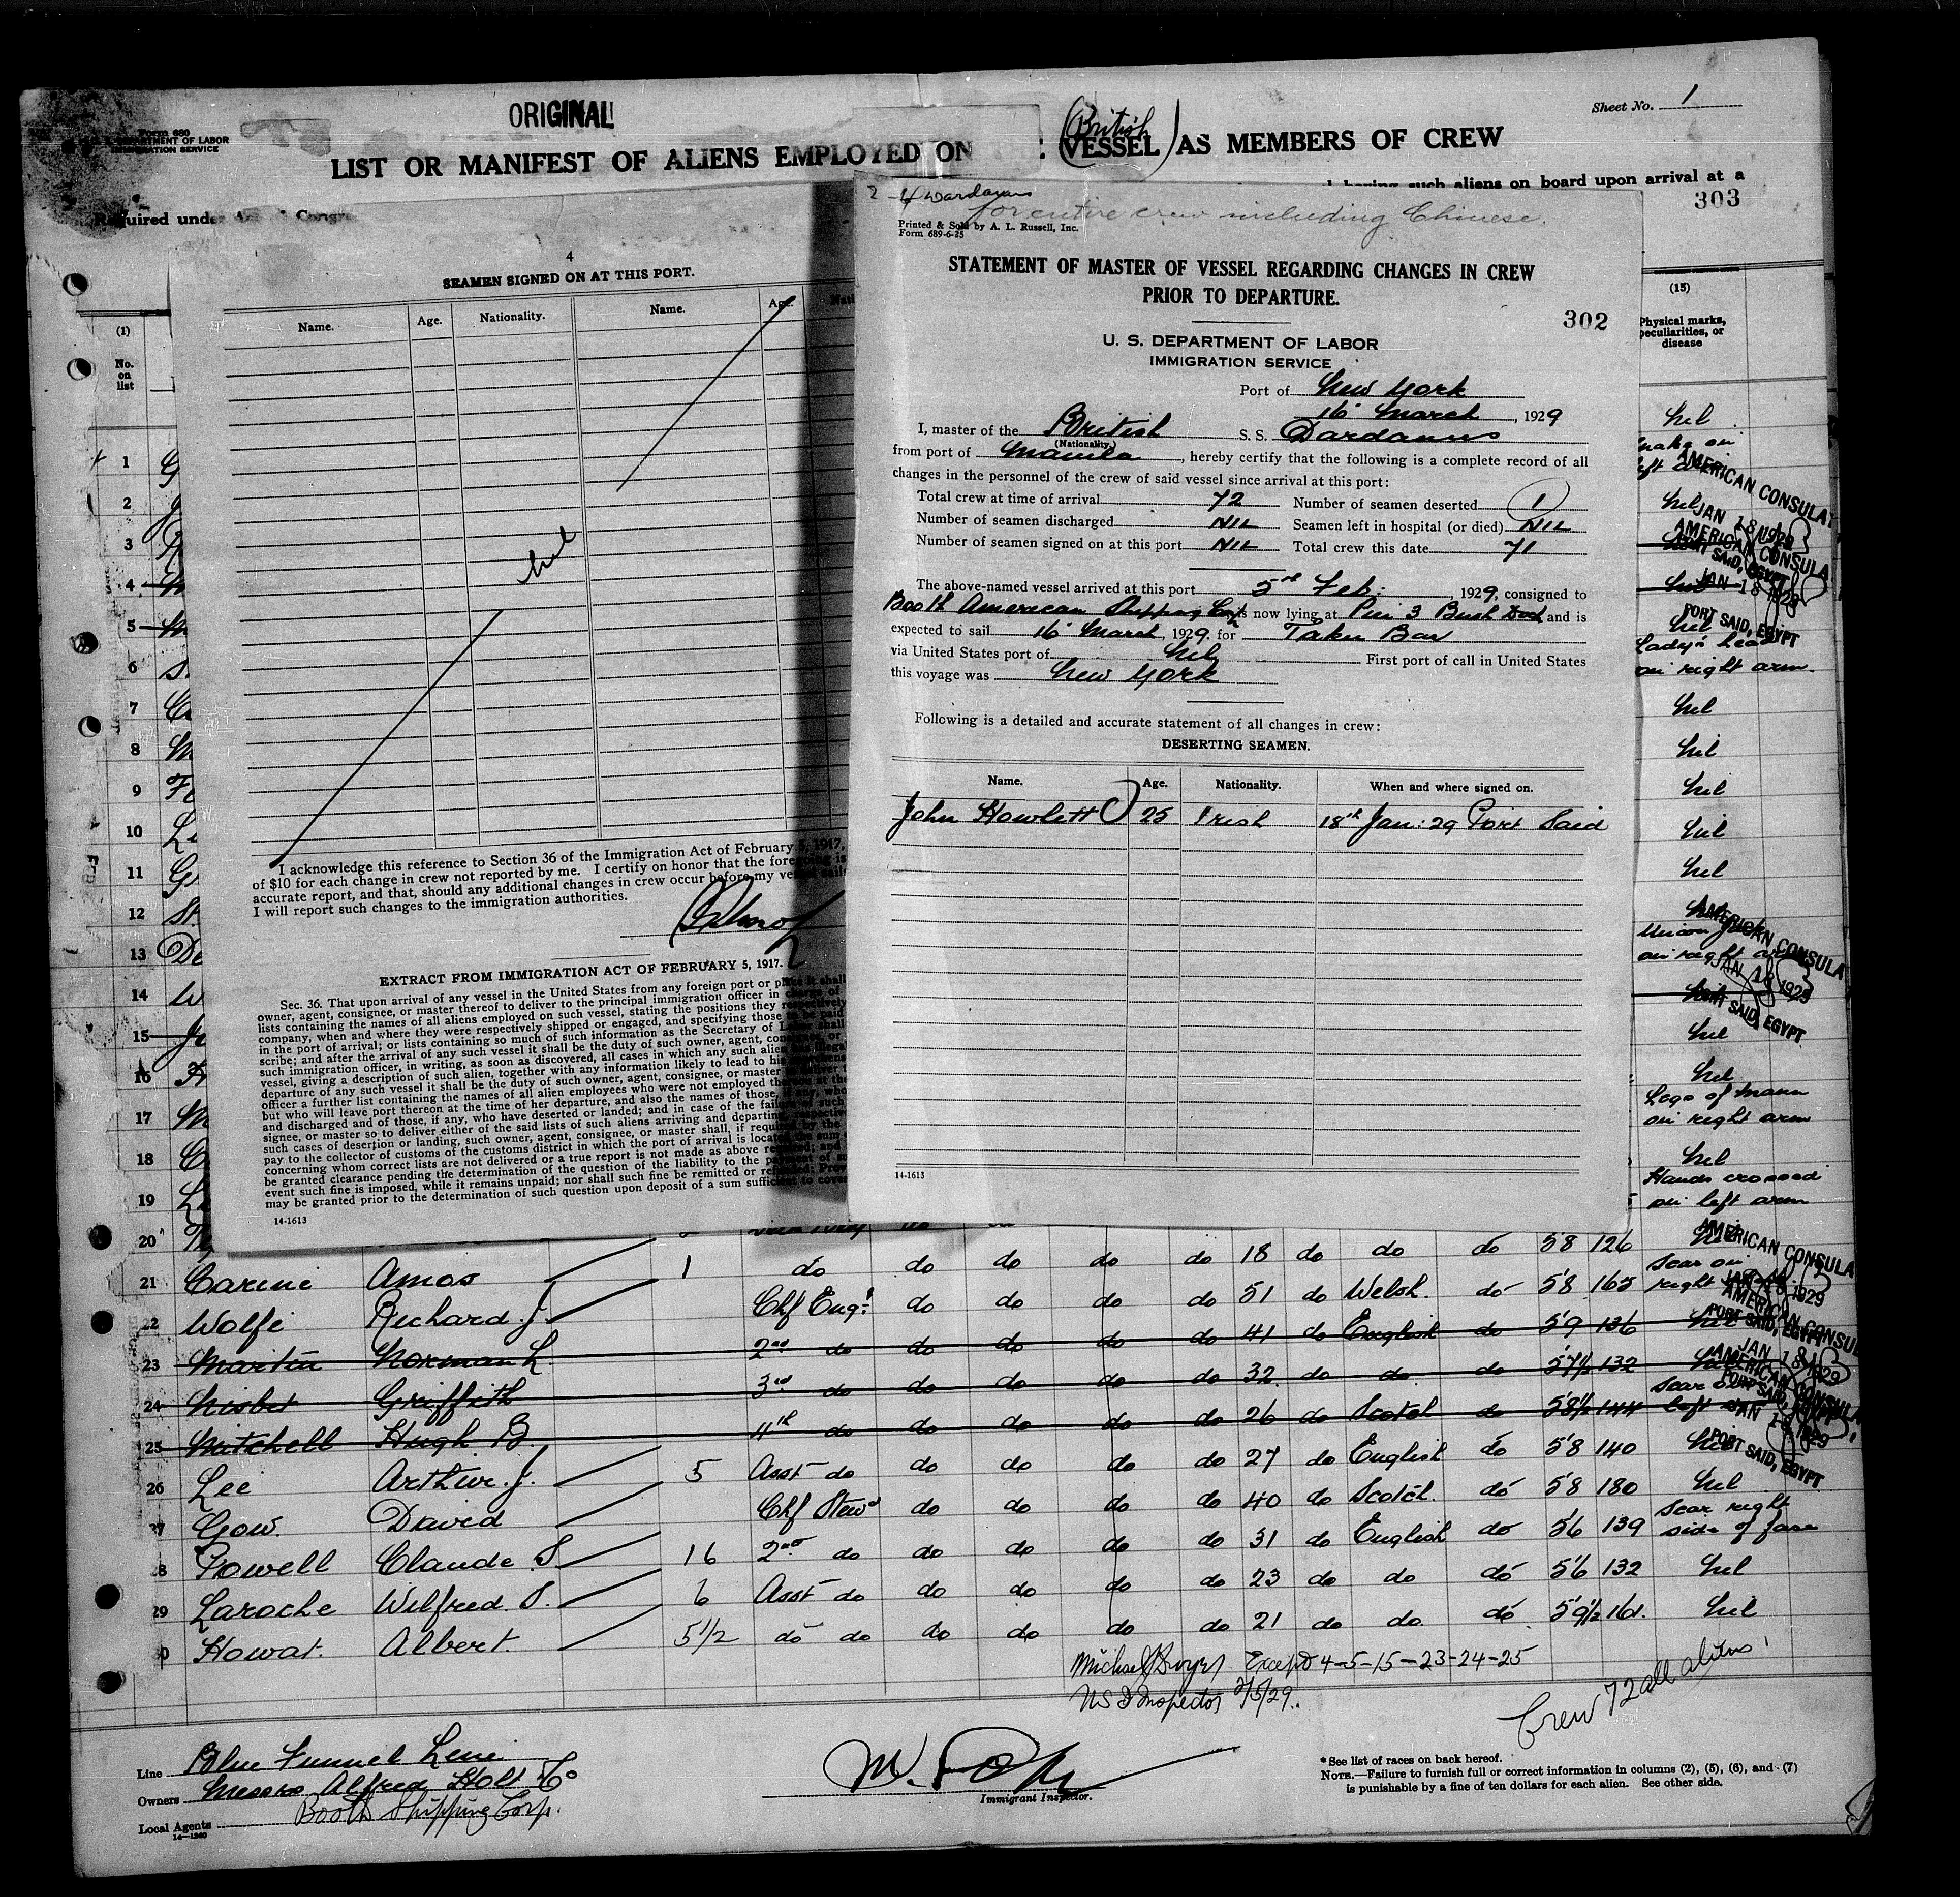 ORIGINAL
Sheet No. 1
Form 680
U. S. DEPARTMENT OF LABOR
IMMIGRATION SERVICE
(British)
LIST OR MANIFEST OF ALIENS EMPLOYED ON VESSEL AS MEMBERS OF CREW
Required under Act
having such aliens on board upon arrival at a
303
4
SEAMEN SIGNED ON AT THIS PORT.
Name. Age. Nationality. Name. Age.
Nil
I acknowledge this reference to Section 36 of the Immigration Act of February 5, 1917,
of $10 for each change in crew not reported by me. I certify on honor that the foregoing is
accurate report, and that, should any additional changes in crew occur before my vessel sails
I will report such changes to the immigration authorities.
EXTRACT FROM IMMIGRATION ACT OF FEBRUARY 5, 1917.
Sec. 36. That upon arrival of any vessel in the United States from any foreign port or place it shall
owner, agent, consignee, or master thereof to deliver to the principal immigration officer in charge of
lists containing the names of all aliens employed on such vessel, stating the positions they respectively
company, when and where they were respectively shipped or engaged, and specifying those to be paid
in the port of arrival; or lists containing so much of such information as the Secretary of Labor shall
scribe; and after the arrival of any such vessel it shall be the duty of such owner, agent, consignee, or
such immigration officer, in writing, as soon as discovered, all cases in which any such alien has illegal
vessel, giving a description of such alien, together with any information likely to lead to his
departure of any such vessel it shall be the duty of such owner, agent, consignee, or master to deliver
officer a further list containing the names of all alien employees who were not employed thereon at the
but who will leave port thereon at the time of her departure, and also the names of those, if any, who
and discharged and of those, if any, who have deserted or landed; and in case of the failure of such
signee, or master so to deliver either of the said lists of such aliens arriving and departing, respective
such cases of desertion or landing, such owner, agent, consignee, or master shall, if required by the
pay to the collector of customs of the customs district in which the port of arrival is located the sum
concerning whom correct lists are not delivered or a true report is not made as above required; and
be granted clearance pending the determination of the question of the liability to the payment of
event such fine is imposed, while it remains unpaid; nor shall such fine be remitted or refunded: Prov
may be granted prior to the determination of such question upon deposit of a sum sufficient to cover
14-1613
for entire crew including Chinese.
Printed & Sold by A. L. Russell, Inc.
Form 689-6-25
STATEMENT OF MASTER OF VESSEL REGARDING CHANGES IN CREW
PRIOR TO DEPARTURE.
302
U. S. DEPARTMENT OF LABOR
IMMIGRATION SERVICE
Port of New York
16 March, 1929
I, master of the British S. S. Dardanus
(Nationality.)
from port of Manila, hereby certify that the following is a complete record of all
changes in the personnel of the crew of said vessel since arrival at this port:
Total crew at time of arrival 72 Number of seamen deserted 1
Number of seamen discharged NIL Seamen left in hospital (or died) NIL
Number of seamen signed on at this port NIL Total crew this date 71
The above-named vessel arrived at this port 5th Feb., 1929, consigned to
Booth American Shipping Corp is now lying at Pier 3 Bush Dock and is
expected to sail 16 March, 1929 for Taku Bar
via United States port of Nil First port of call in United States
this voyage was New York
Following is a detailed and accurate statement of all changes in crew:
DESERTING SEAMEN.
Name. Age. Nationality. When and where signed on.
John Howlett 25 Irish 18th Jan: 29 Port Said
14-1613
(1) No. on list
(15) Physical marks, peculiarities, or disease
1
2
3
4
5
6
7
8
9
10
11
12
13
14
15
16
17
18
19
20
nil
AMERICAN CONSULATE
JAN 18 1929
PORT SAID, EGYPT
Lady's head
on right arm
nil
nil
nil
nil
nil
on right arm
nil
nil
Legs of mann
on right arm
nil
Hands crossed
on left arm
21 Carine Amos 1 do do do do do 18 do do do 58 126
22 Wolfe Richard J. Chf Engr do do do do 51 do Welsh. do 58 165 scar on right
23 Martin Norman L. 2nd do do do do do 41 do English do 59 136 nil
24 Nisbet Griffith 3rd do do do do do 32 do do do 57½ 132
25 Mitchell Hugh B. 4th do do do do do 26 do Scotch do 58½ 144 scar on left
26 Lee Arthur J. 5 Asst do do do do do 27 do English do 58 140 nil
27 Gow. David Chf Stewd do do do do 40 do Scotch. do 58 180 nil
28 Powell Claude S. 16 2nd do do do do do 31 do English do 56 139 scar right side of face
29 Laroche Wilfred S. 6 Asst do do do do do 23 do do do 56 132 nil
30 Howat. Albert. 5½ do do do do do do 21 do do. do 59½ 161. nil
Except 4-5-15-23-24-25
US I Inspector 2/5/29.
Crew 72 all aliens
Line Blue Funnel Line
Owners Messrs Alfred Holt & Co
Local Agents Booth Shipping Corp.
14-1240
Immigrant Inspector.
*See list of races on back hereof.
NOTE.—Failure to furnish full or correct information in columns (2), (5), (6), and (7)
is punishable by a fine of ten dollars for each alien. See other side.